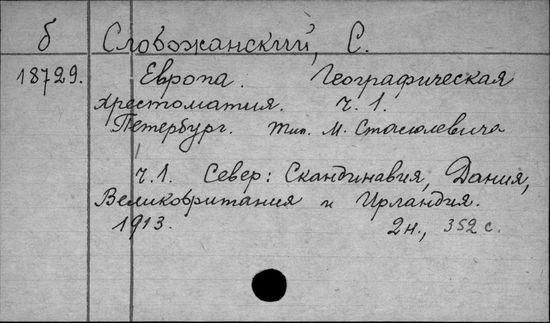 б Словожанский, С.
18729. Европа. Географическая
хрестоматия. ч. 1.
Петербург. тип. М. Стасюлевича
ч.1. Север: Скандинавия, Дания,
Великобритания и Ирландия.
1913. 2н., 352 с.